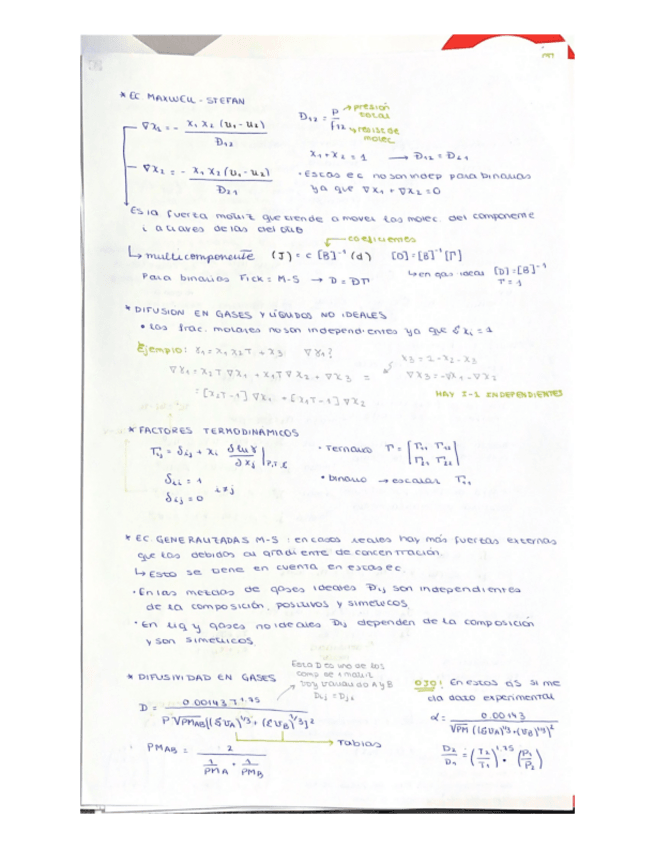 * EC MAXWELL - STEFAN
∇x₁ = - x₁ x₂ (u₁ - u₂) / Đ₁₂
Đ₁₂ = P / f₁₂
→ presión total
→ resist de molec.
x₁ + x₂ = 1 → Đ₁₂ = Đ₂₁
∇x₂ = - x₁ x₂ (u₁ - u₂) / Đ₂₁
· Estas ec no son indep para binarias
ya que ∇x₁ + ∇x₂ = 0
Es la fuerza motriz que tiende a mover las molec. del componente
i a traves de las del otro
→ coeficientes
↳ multicomponente (J) = c [B]⁻¹ (d) [D] = [B]⁻¹ [Γ]
Para binarias Fick = M-S → D = ĐΓ
↳ en gas ideal [D] = [B]⁻¹
Γ = 1
* DIFUSION EN GASES Y LÍQUIDOS NO IDEALES
• Las frac. molares no son independientes ya que Σxᵢ = 1
Ejemplo: γ₁ = x₁ x₂ T + x₃ ∇γ₁?
∇γ₁ = x₂T ∇x₁ + x₁T ∇x₂ + ∇x₃ =
∇x₃ = -∇x₁ - ∇x₂
= [x₂T - 1] ∇x₁ + [x₁T - 1] ∇x₂
HAY I-1 INDEPENDIENTES
* FACTORES TERMODINAMICOS
Γᵢⱼ = δᵢⱼ + xᵢ δ ln γ / δxⱼ |P,T,Σ
· Ternario Γ = [Γ₁₁ Γ₁₂
Γ₂₁ Γ₂₂]
δᵢᵢ = 1
δᵢⱼ = 0 i≠j
· binario → escalar Γ₁₁
* EC. GENERALIZADAS M-S : en casos reales hay más fuerzas externas
que las debidas al gradiente de concentración.
↳ Esto se tiene en cuenta en estas ec.
· En las mezclas de gases ideales Đᵢⱼ son independientes
de la composición, positivos y simetricos.
· En liq y gases no ideales Đᵢⱼ dependen de la composición
y son simetricos.
* DIFUSIVIDAD EN GASES
Esta D es uno de los
comp de la matriz
voy variando A y B
Dᵢⱼ = Dⱼᵢ
D = 0.00143 T^1.75 / P √PM_AB [(Συ_A)^1/3 + (Συ_B)^1/3]²
→ Tablas
OJO! En estos ejs si me
da dato experimental
α = 0.00143 / √PM [(Συ_A)^1/3 + (Συ_B)^1/3]²
· PM_AB = 2 / (1/PM_A + 1/PM_B)
D₂/D₁ = (T₂/T₁)^1.75 · (P₁/P₂)